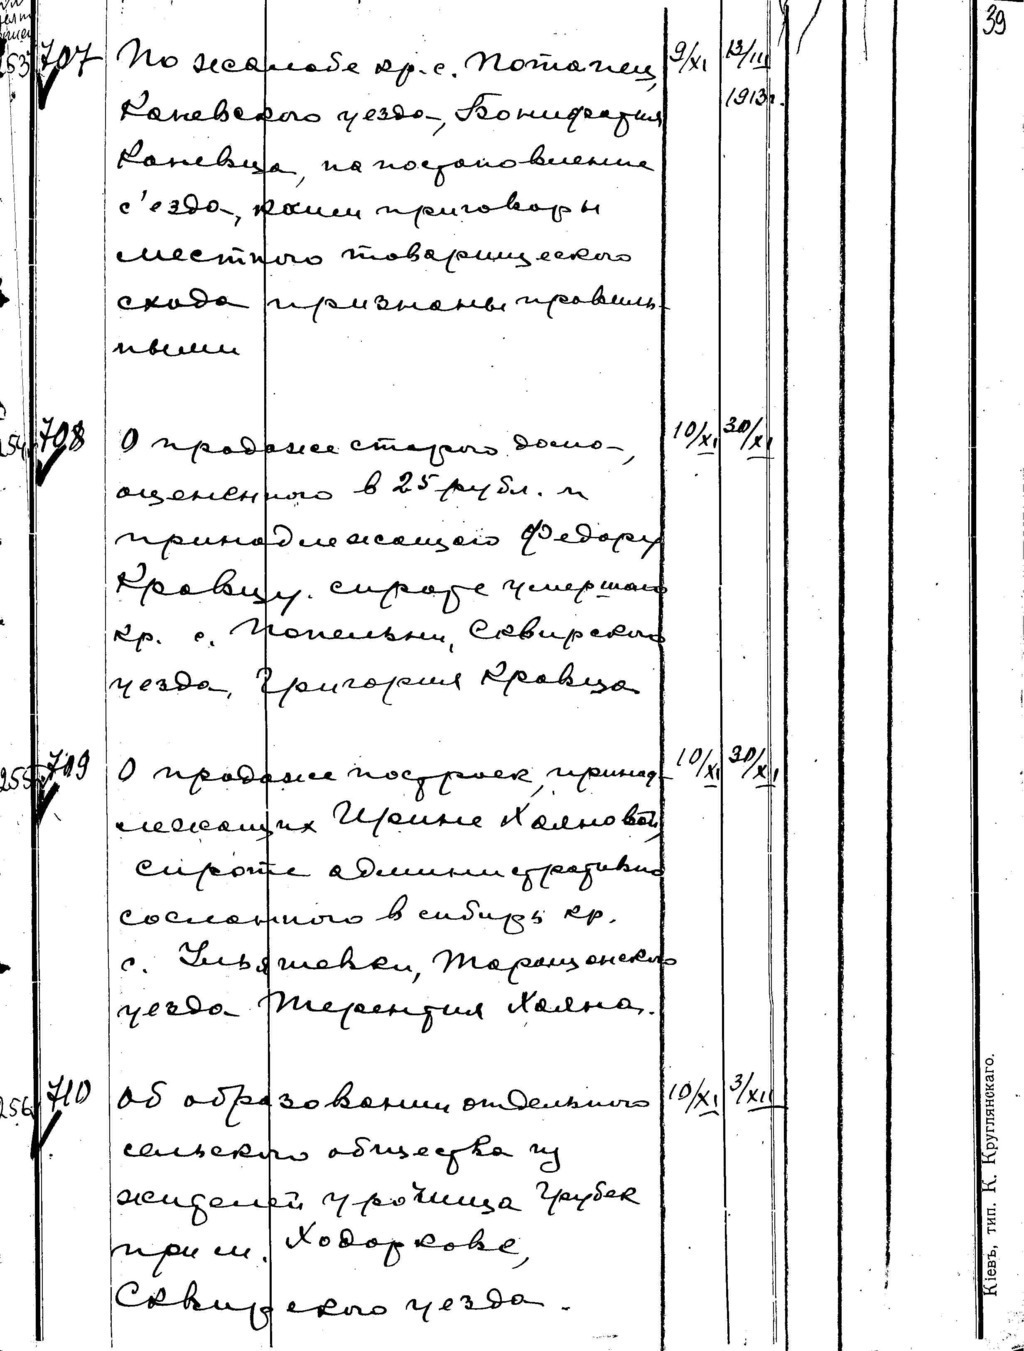 39
253 707 По жалобе кр. с. Потапец, 9/XI 13/III
Каневского уезда, Бонифатия 1913 г.
Каневца, на постановление
с'езда, коим приговоры
местного товарищеского
схода признаны правиль-
ными
254 708 О продаже старого дома, 10/XI 30/XI
оцененного в 25 рубл. и
принадлежащего Федору
Кравцу. сироте умершаго
кр. с. Попельни, Сквирского
уезда, Григория Кравца
255 709 О продаже построек, принад- 10/XI 30/XI
лежащих Ирине Хаяновой,
сироте административно
сосланного в сибирь кр.
с. Ульяшевки, Таращанского
уезда Терентия Хаяна.
256 710 Об образовании отдельного 10/XI 3/XII
сельского общества из
жителей урочища Грубек
при м. Ходоркове,
Сквирского уезда.
Кіевъ, тип. К. Круглянскаго.